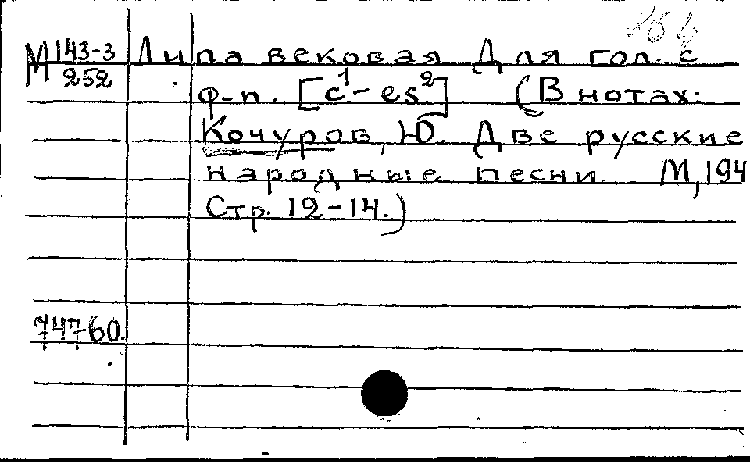 М 143-3 Липа вековая Для гол. с
252 ф-п. [c¹-es²] (В нотах:
Кочуров, Ю. Две русские
народные песни М, 194
Стр. 12-14.)
74760.